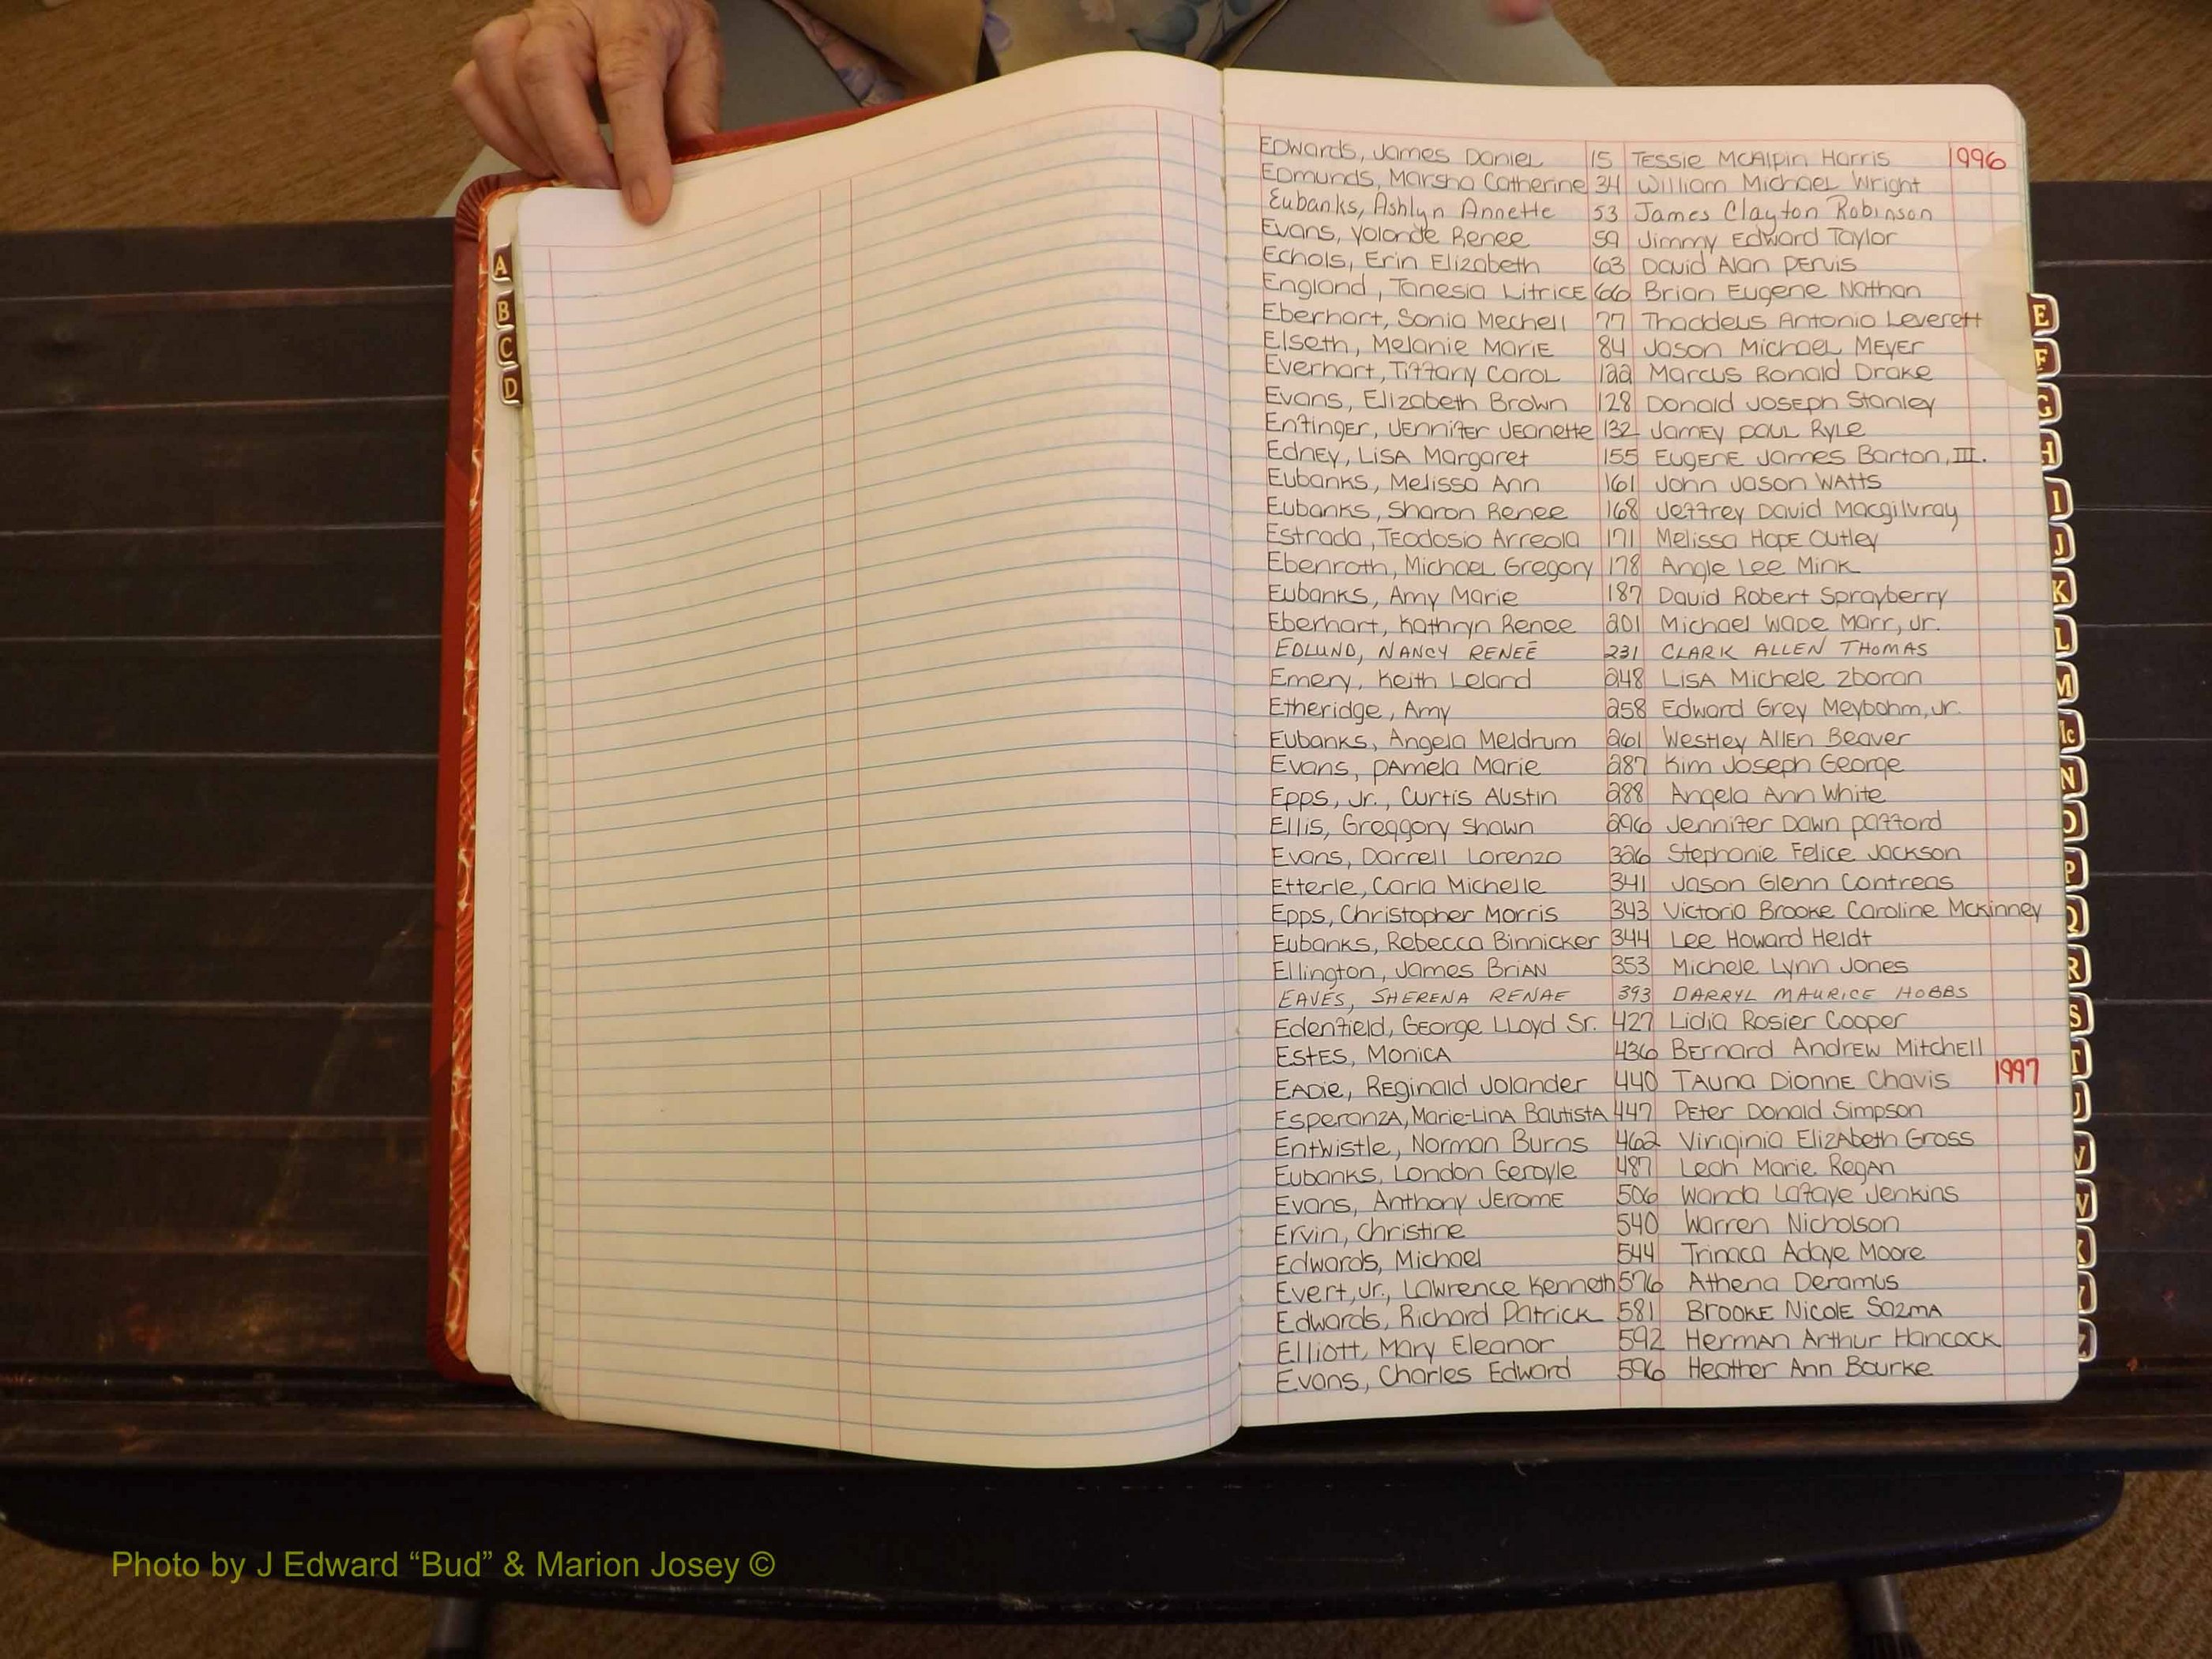 A
B
C
D
Edwards, James Daniel 15 Tessie McAlpin Harris 1996
Edmunds, Marsha Catherine 34 William Michael Wright
Eubanks, Ashlyn Annette 53 James Clayton Robinson
Evans, Yolande Renee 59 Jimmy Edward Taylor
Echols, Erin Elizabeth 63 David Alan Pervis
England, Tanesia Litrice 66 Brian Eugene Nathan
Eberhart, Sonia Mechell 77 Thaddeus Antonio Leverett
Elseth, Melanie Marie 84 Jason Michael Meyer
Everhart, Tiffany Carol 122 Marcus Ronald Drake
Evans, Elizabeth Brown 128 Donald Joseph Stanley
Enfinger, Jennifer Jeanette 132 Jamey Paul Ryle
Edney, Lisa Margaret 155 Eugene James Barton, III.
Eubanks, Melissa Ann 161 John Jason Watts
Eubanks, Sharon Renee 168 Jeffrey David Macgilvray
Estrada, Teodosio Arreola 171 Melissa Hope Outley
Ebenroth, Michael Gregory 178 Angie Lee Mink
Eubanks, Amy Marie 187 David Robert Sprayberry
Eberhart, Kathryn Renee 201 Michael Wade Marr, Jr.
EDLUND, NANCY RENEÉ 231 CLARK ALLEN THOMAS
Emery, Keith Leland 248 Lisa Michele Zboran
Etheridge, Amy 258 Edward Grey Meybohm, Jr.
Eubanks, Angela Meldrum 261 Westley Allen Beaver
Evans, Pamela Marie 287 Kim Joseph George
Epps, Jr., Curtis Austin 288 Angela Ann White
Ellis, Greggory Shawn 296 Jennifer Dawn Pafford
Evans, Darrell Lorenzo 326 Stephanie Felice Jackson
Etterle, Carla Michelle 341 Jason Glenn Contreas
Epps, Christopher Morris 343 Victoria Brooke Caroline McKinney
Eubanks, Rebecca Binnicker 344 Lee Howard Heldt
Ellington, James Brian 353 Michele Lynn Jones
EAVES, SHERENA RENAE 393 DARRYL MAURICE HOBBS
Edenfield, George Lloyd Sr. 427 Lidia Rosier Cooper
Estes, Monica 436 Bernard Andrew Mitchell
Eadie, Reginald Jolander 440 Tauna Dionne Chavis 1997
Esperanza, Marie-Lina Bautista 447 Peter Donald Simpson
Entwistle, Norman Burns 462 Viriginia Elizabeth Gross
Eubanks, London Geroyle 487 Leah Marie Regan
Evans, Anthony Jerome 506 Wanda Lafaye Jenkins
Ervin, Christine 540 Warren Nicholson
Edwards, Michael 544 Trinaca Adaye Moore
Evert, Jr., Lawrence Kenneth 576 Athena Deramus
Edwards, Richard Patrick 581 Brooke Nicole Sazma
Elliott, Mary Eleanor 592 Herman Arthur Hancock
Evans, Charles Edward 596 Heather Ann Bourke
E
F
G
H
I
J
K
L
M
N
O
P
Q
R
S
T
V
Photo by J Edward “Bud” & Marion Josey ©